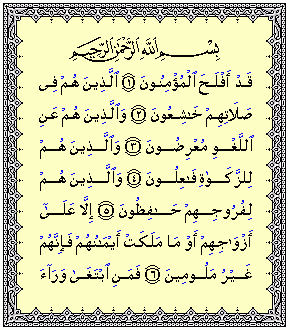 بِسْمِ ٱللَّهِ ٱلرَّحْمَٰنِ ٱلرَّحِيمِ
قَدْ أَفْلَحَ ٱلْمُؤْمِنُونَ ۝١ ٱلَّذِينَ هُمْ فِى
صَلَاتِهِمْ خَٰشِعُونَ ۝٢ وَٱلَّذِينَ هُمْ عَنِ
ٱللَّغْوِ مُعْرِضُونَ ۝٣ وَٱلَّذِينَ هُمْ
لِلزَّكَوٰةِ فَٰعِلُونَ ۝٤ وَٱلَّذِينَ هُمْ
لِفُرُوجِهِمْ حَٰفِظُونَ ۝٥ إِلَّا عَلَىٰٓ
أَزْوَٰجِهِمْ أَوْ مَا مَلَكَتْ أَيْمَٰنُهُمْ فَإِنَّهُمْ
غَيْرُ مَلُومِينَ ۝٦ فَمَنِ ٱبْتَغَىٰ وَرَآءَ